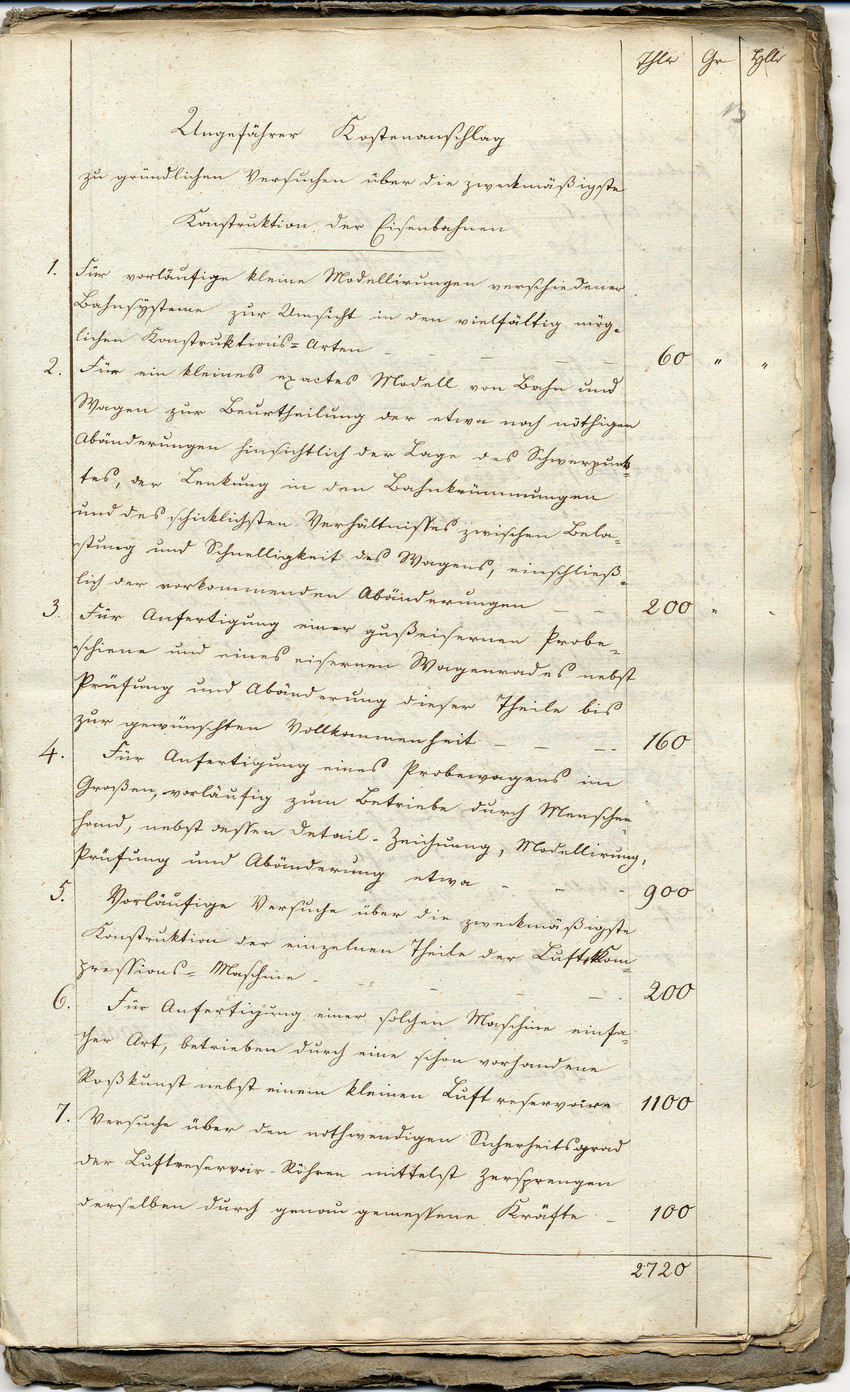 Thlr Gr Hllr
13
Ungefährer Kostenanschlag
zu gründlichen Versuchen über die zweckmäßigste
Konstruktion der Eisenbahnen
1. Für vorläufige kleine Modellirungen verschiedener
Bahnsÿsteme zur Umsicht in den vielfältig mög-
lichen Konstruktions-Arten – – – 60 " "
2. Für ein kleines exactes Modell von Bahn und
Wagen zur Beurtheilung der etwa noch nöthigen
Abänderungen hinsichtlich der Lage des Schwerpunk-
tes, der Lenkung in den Bahnkrümmungen
und des schicklichsten Verhältnisses zwischen Bela-
stung und Schnelligkeit des Wagens, einschließ-
lich der vorkommenden Abänderungen – – 200 " "
3. Für Anfertigung einer gußeisernen Probe-
schiene und eines eisernen Wagenrades nebst
Prüfung und Abänderung dieser Theile bis
zur gewünschten Vollkommenheit – – – 160
4. Für Anfertigung eines Probewagens im
Großen, vorläufig zum Betriebe durch Menschen
hand, nebst dessen Detail-Zeichnung, Modellirung,
Prüfung und Abänderung etwa – – – 900
5. Vorläufige Versuche über die zweckmäßigste
Konstruktion der einzelnen Theile der Luft-Kom-
pressions-Maschine – – – – 200
6. Für Anfertigung einer solchen Maschine einfa-
cher Art, betrieben durch eine schon vorhandene
Roßkunst nebst einem kleinen Luftreservoire 1100
7. Versuche über den nothwendigen Sicherheitsgrad
der Luftreservoir-Röhren mittelst Zersprengen
derselben durch genau gemessene Kräfte – 100
2720